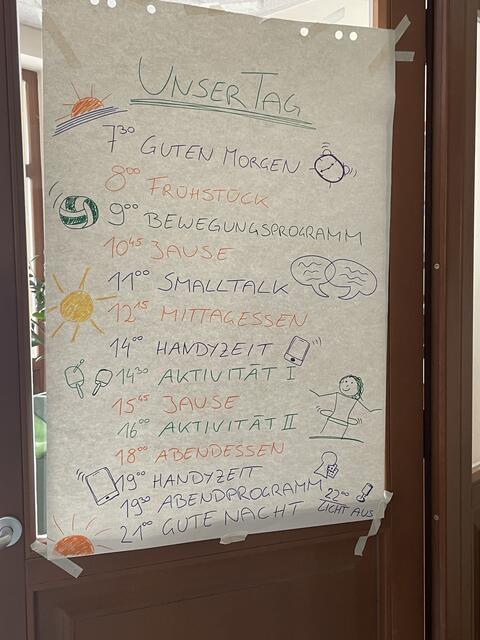 UNSER TAG
7³⁰ GUTEN MORGEN
8⁰⁰ FRÜHSTÜCK
9⁰⁰ BEWEGUNGSPROGRAMM
10⁴⁵ JAUSE
11⁰⁰ SMALLTALK
12¹⁵ MITTAGESSEN
14⁰⁰ HANDYZEIT
14³⁰ AKTIVITÄT I
15⁴⁵ JAUSE
16⁰⁰ AKTIVITÄT II
18⁰⁰ ABENDESSEN
19⁰⁰ HANDYZEIT
19³⁰ ABENDPROGRAMM
21⁰⁰ GUTE NACHT
22⁰⁰
LICHT AUS